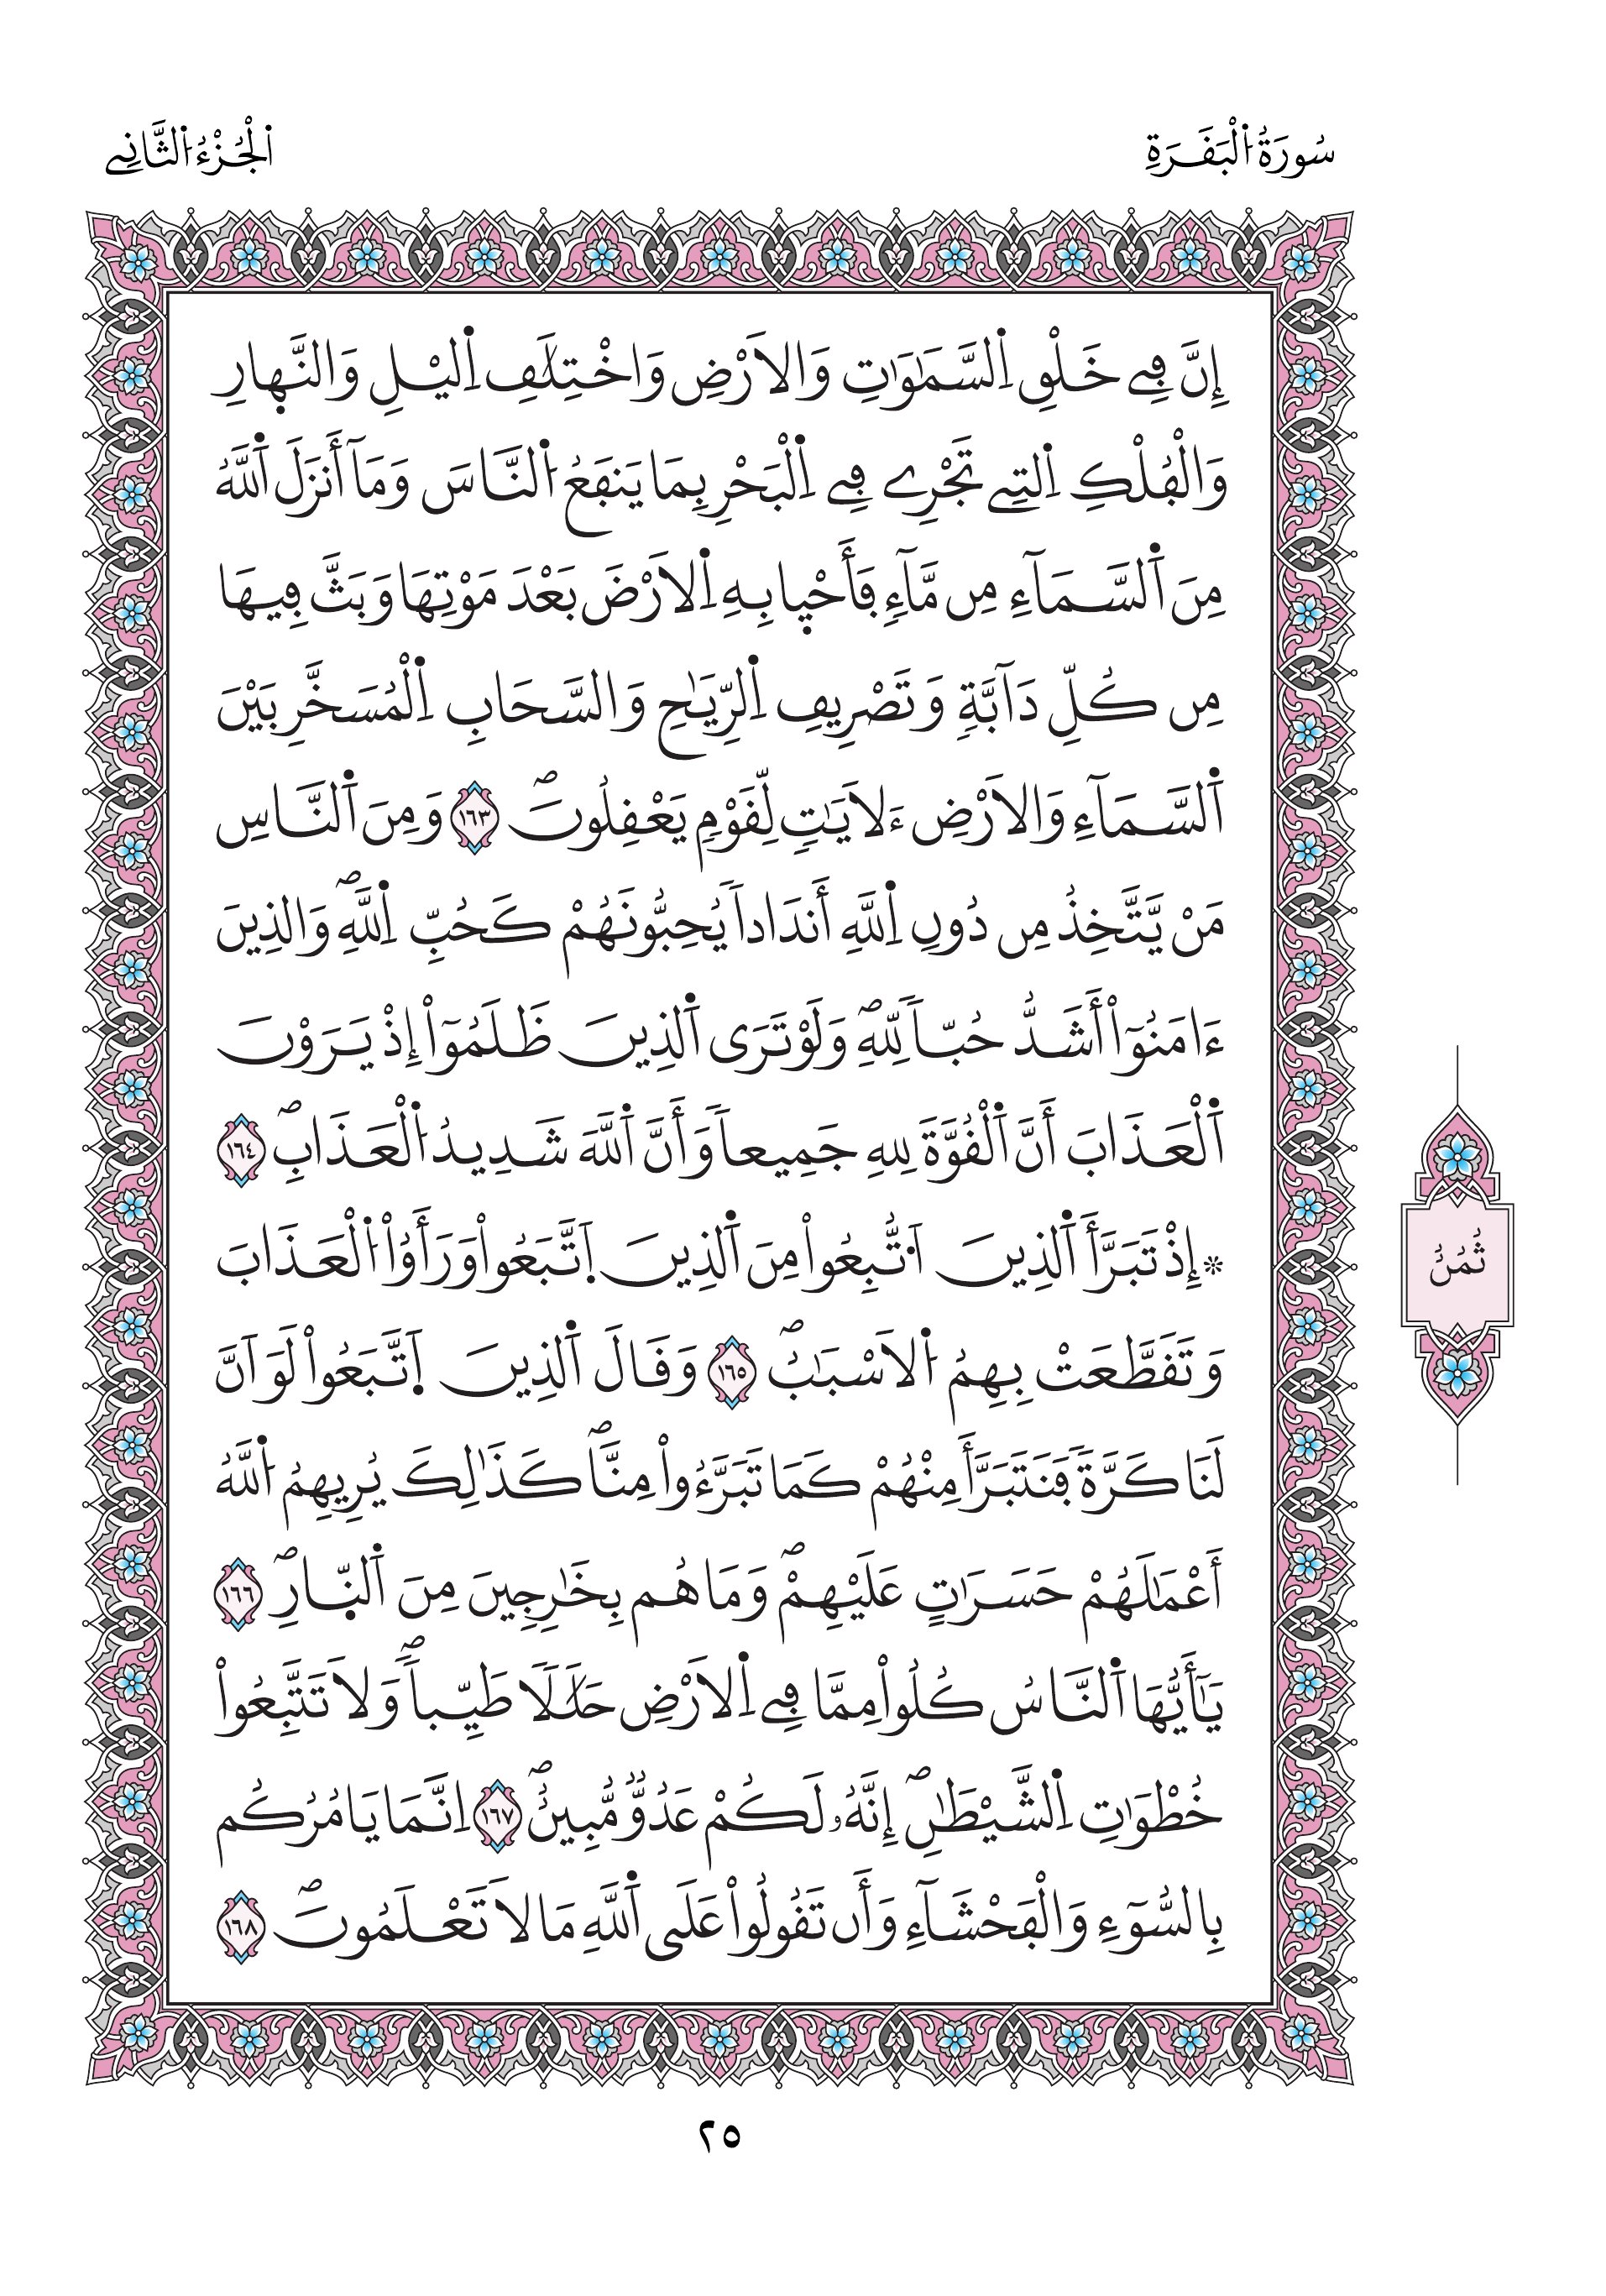 سُورَةُ اُ۬لْبَقَرَةِ
اُ۬لْجُزْءُ اُ۬لثَّانِے
إِنَّ فِے خَلْقِ اِ۬لسَّمَٰوَٰتِ وَالَارْضِ وَاخْتِلَٰفِ اِ۬ليْلِ وَالنَّه۪ارِ
وَالْفُلْكِ اِ۬لتِے تَجْرِے فِے اِ۬لْبَحْرِ بِمَا يَنفَعُ اُ۬لنَّاسَ وَمَآ أَنزَلَ اَ۬للَّهُ
مِنَ اَ۬لسَّمَآءِ مِن مَّآءٖ فَأَحْي۪ا بِهِ اِ۬لَارْضَ بَعْدَ مَوْتِهَا وَبَثَّ فِيهَا
مِن كُلِّ دَآبَّةٖ وَتَصْرِيفِ اِ۬لرِّيَٰحِ وَالسَّحَابِ اِ۬لْمُسَخَّرِ بَيْنَ
اَ۬لسَّمَآءِ وَالَارْضِ ءَلَايَٰتٖ لِّقَوْمٖ يَعْقِلُونَۖ ١٦٣ وَمِنَ اَ۬لنَّاسِ
مَنْ يَّتَّخِذُ مِن دُونِ اِ۬للَّهِ أَندَاداٗ يُحِبُّونَهُمْ كَحُبِّ اِ۬للَّهِۖ وَالذِينَ
ءَامَنُوٓاْ أَشَدُّ حُبّاٗ لِّلهِۖ وَلَوْ تَرَى اَ۬لذِينَ ظَلَمُوٓاْ إِذْ يَرَوْنَ
اَ۬لْعَذَابَ أَنَّ اَ۬لْقُوَّةَ لِلهِ جَمِيعاٗ وَأَنَّ اَ۬للَّهَ شَدِيدُ اُ۬لْعَذَابِۖ ١٦٤
۞إِذْ تَبَرَّأَ اَ۬لذِينَ اَ۟تُّبِعُواْ مِنَ اَ۬لذِينَ اَ۪تَّبَعُواْ وَرَأَوُاْ اُ۬لْعَذَابَ
وَتَقَطَّعَتْ بِهِمُ اُ۬لَاسْبَٰبُۖ ١٦٥ وَقَالَ اَ۬لذِينَ اَ۪تَّبَعُواْ لَوَ اَنَّ
لَنَا كَرَّةٗ فَنَتَبَرَّأَ مِنْهُمْ كَمَا تَبَرَّءُواْ مِنَّاۖ كَذَٰلِكَ يُرِيهِمُ اُ۬للَّهُ
أَعْمَٰلَهُمْ حَسَرَٰتٍ عَلَيْهِمْۖ وَمَا هُم بِخَٰرِجِينَ مِنَ اَ۬لنّ۪ارِۖ ١٦٦
يَٰٓأَيُّهَا اَ۬لنَّاسُ كُلُواْ مِمَّا فِے اِ۬لَارْضِ حَلَٰلاٗ طَيِّباٗۖ وَلَا تَتَّبِعُواْ
خُطْوَٰتِ اِ۬لشَّيْطَٰنِۖ إِنَّهُۥ لَكُمْ عَدُوّٞ مُّبِينٌۖ ١٦٧ اِنَّمَا يَامُرُكُم
بِالسُّوٓءِ وَالْفَحْشَآءِ وَأَن تَقُولُواْ عَلَى اَ۬للَّهِ مَا لَا تَعْلَمُونَۖ ١٦٨
ثُمُنُ
٢٥